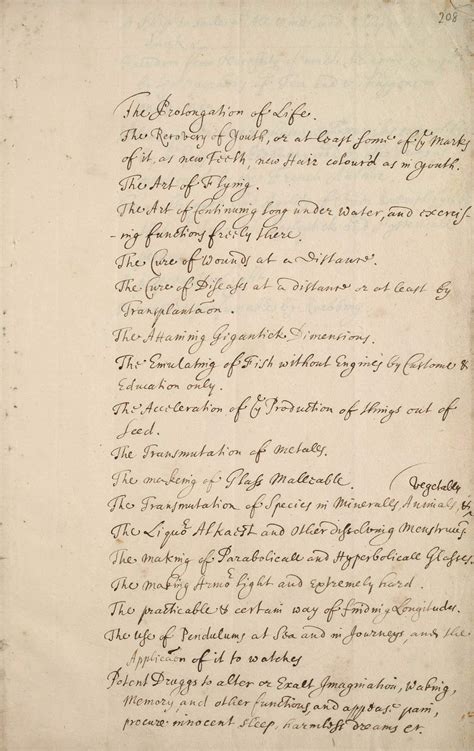 208
The Prolongation of Life.
The Recovery of Youth, or at least some of ye Marks
of it, as new Teeth, new Hair colour'd as in youth.
The Art of Flying.
The Art of Continuing long under water, and exercis-
-ing functions freely there.
The Cure of Wounds at a Distance.
The Cure of Diseases at a distance or at least by
Transplantaon.
The Attaining Gigantick Dimensions.
The Emulating of Fish without Engines by Custome &
Education only.
The Acceleration of ye Production of things out of
Seed.
The Transmutation of Metalls.
The makeing of Glass Malleable.
Vegetalls
The Transmutation of Species in Mineralls, Animals, &
The Liquor Alkaest and other dissolving Menstruums
The making of Parabolicall and Hyperbolicall Glasses.
The making Armor light and Extremely hard.
The practicable & certain way of finding Longitudes.
The use of Pendulums at Sea and in Journeys, and the
Application of it to watches
Potent Druggs to alter or Exalt Imagination, Waking,
Memory, and other functions, and appease pain,
procure innocent sleep, harmless dreams etc.